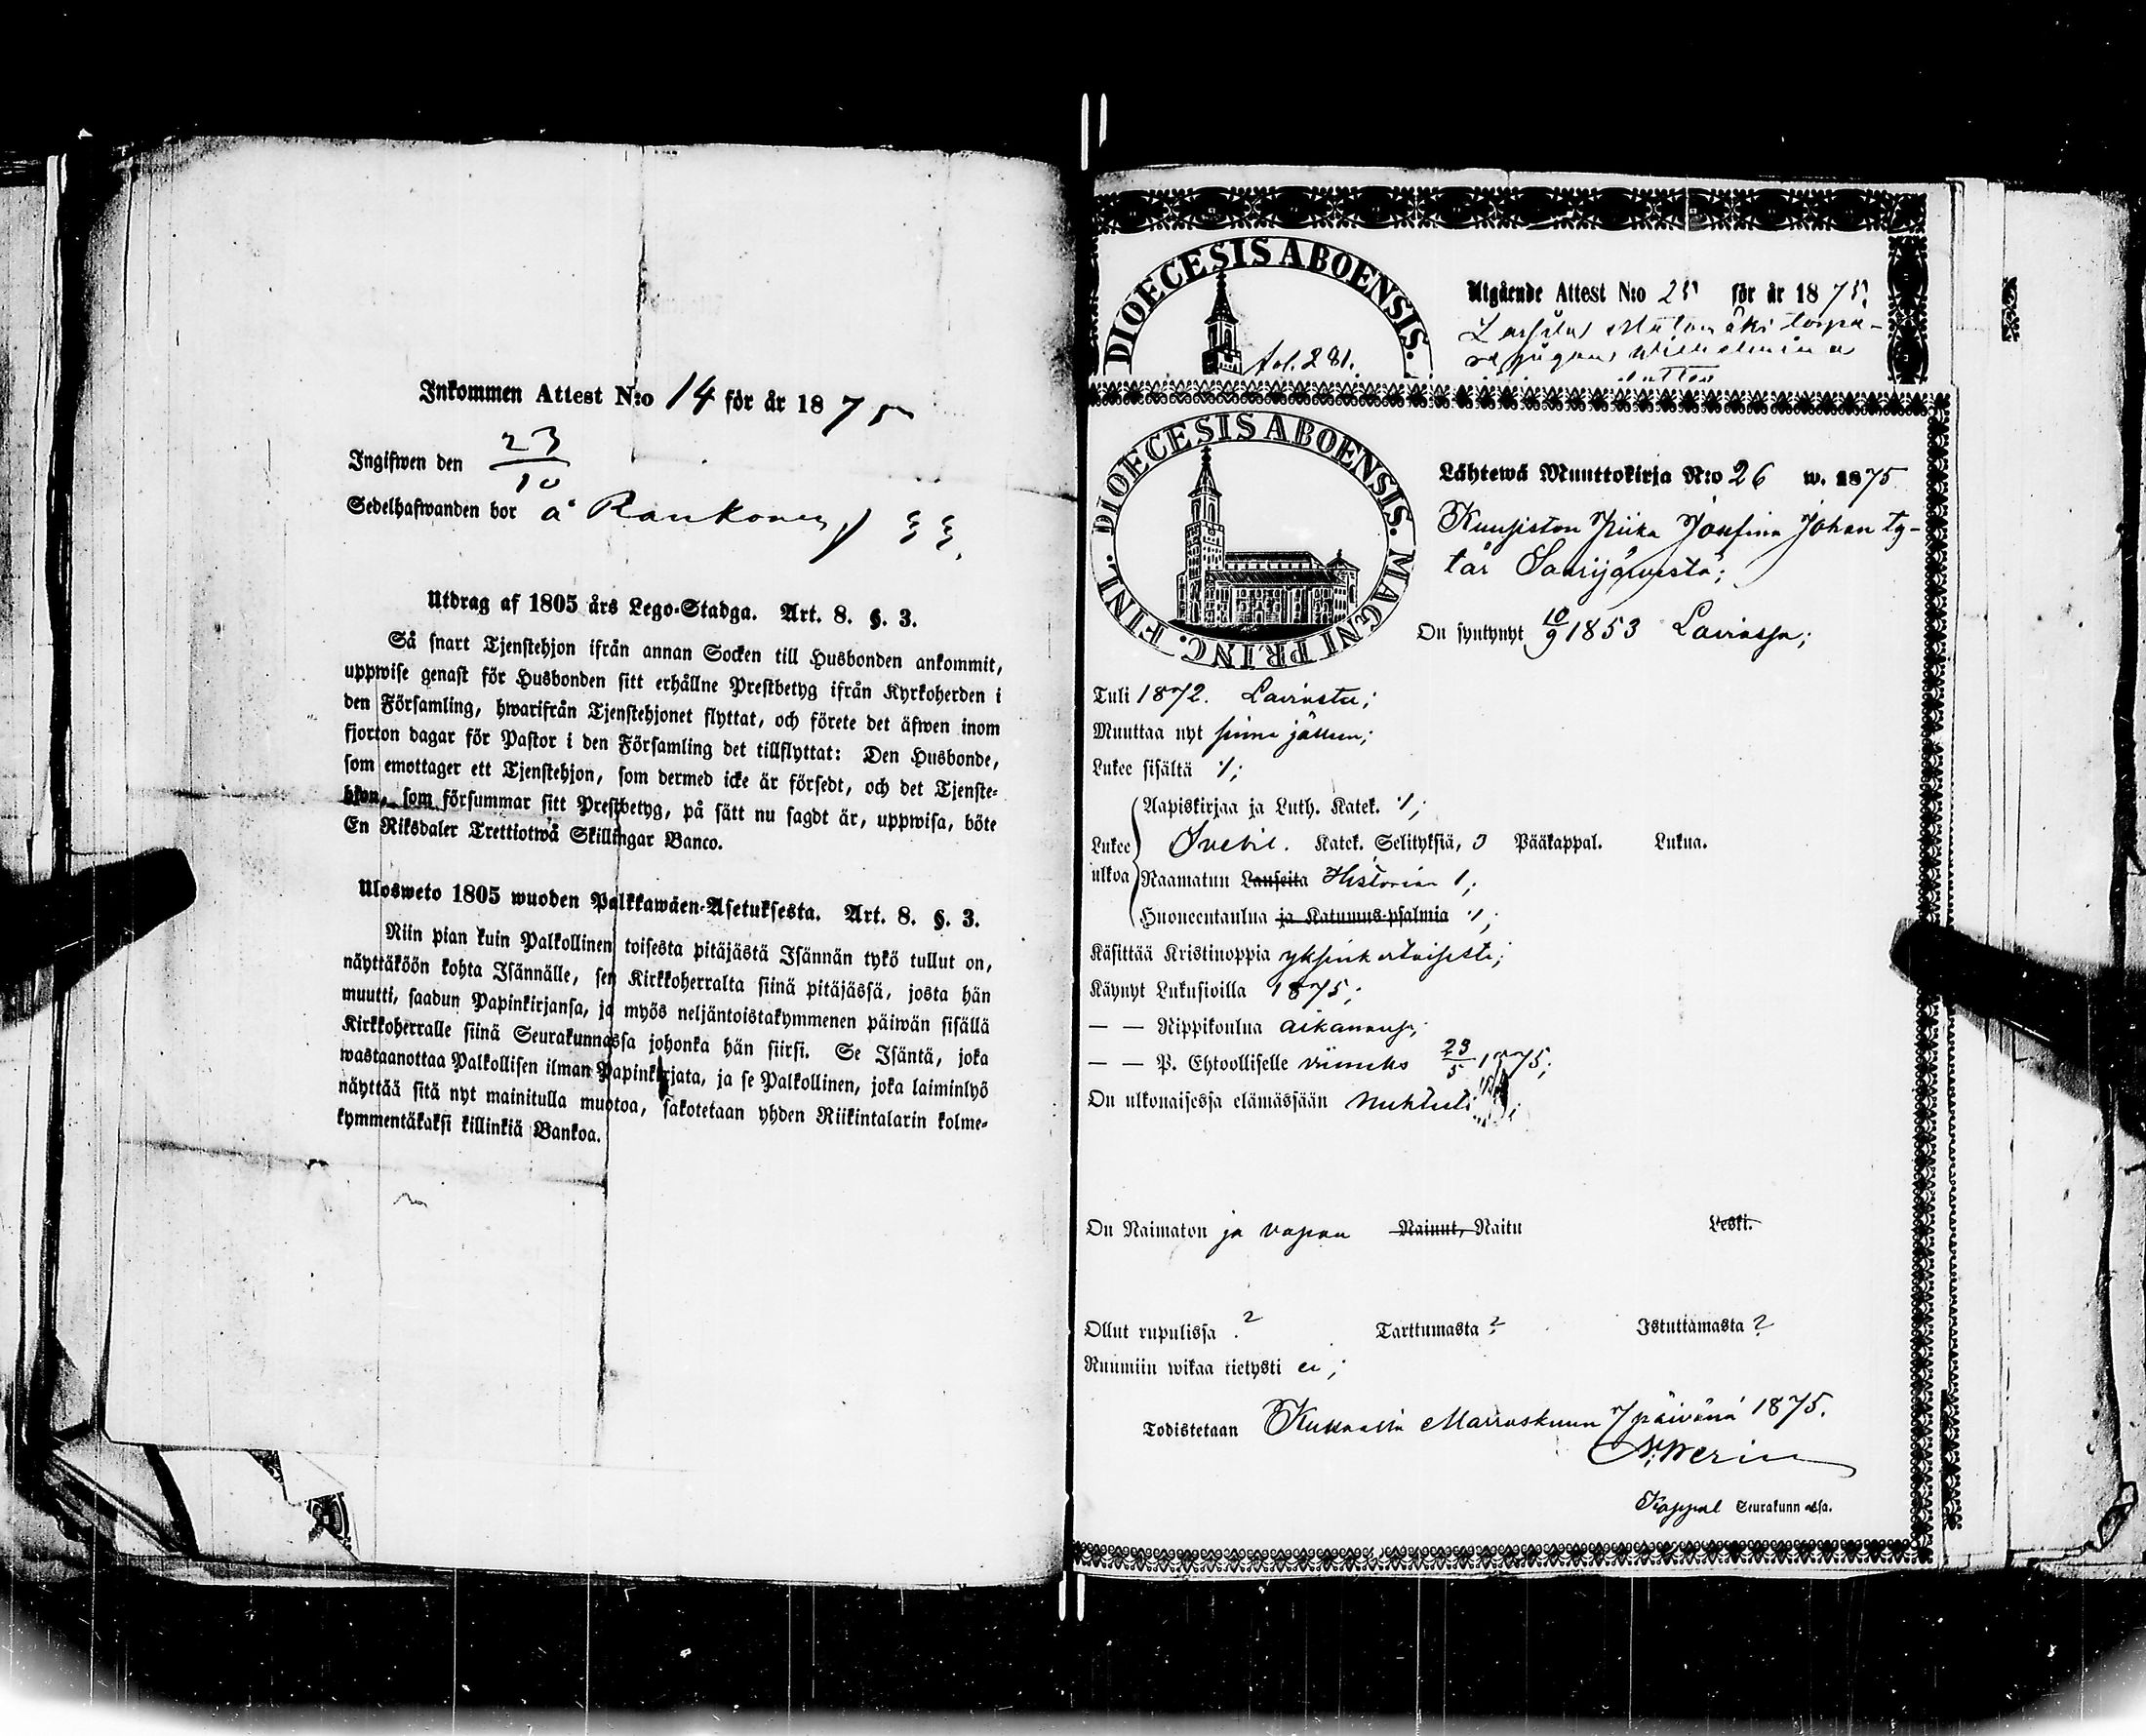 Inkommen Attest N:o 14 för år 1875
Ingifwen den 23/10
Sedelhafwanden bor å
Utdrag af 1805 års Lego-Stadga. Art. 8. §. 3.
Så snart Tjenstehjon ifrån annan Socken till Husbonden ankommit,
uppwise genast för Husbonden sitt erhållne Prestbetyg ifrån Kyrkoherden i
den Församling, hwarifrån Tjenstehjonet flyttat, och förete det äfwen inom
fjorton dagar för Pastor i den Församling det tillflyttat: Den Husbonde,
som emottager ett Tjenstehjon, som dermed icke är försedt, och det Tjenste-
hjon, som försummar sitt Prestbetyg, på sätt nu sagdt är, uppwisa, böte
En Riksdaler Trettiotwå Skillingar Banco.
Ulosweto 1805 wuoden Palkkawäen-Asetuksesta. Art. 8. §. 3.
Niin pian kuin Palkollinen toisesta pitäjästä Isännän tykö tullut on,
näyttäköön kohta Isännälle, sen Kirkkoherralta siinä pitäjässä, josta hän
muutti, saadun Papinkirjansa, ja myös neljäntoistakymmenen päiwän sisällä
Kirkkoherralle siinä Seurakunnassa johonka hän siirsi. Se Isäntä, joka
wastaanottaa Palkollisen ilman Papinkirjata, ja se Palkollinen, joka laiminlyö
näyttää sitä nyt mainitulla muotoa, sakotetaan yhden Riikintalarin kolme-
kymmentäkaksi killinkiä Bankoa.
DIOECESIS ABOENSIS.
fol. 281.
Utgående Attest N:o 25 för år 1875.
torpa-
Wilhelmina
DIOECESIS ABOENSIS. MAGNI PRINC. FINL.
Lähtewä Muuttokirja N:o 26 w. 1875
Kuusiston Piika Josefina Johan ty-
tär Saarijärvestä;
On syntynyt 10/9 1853 Laviassa;
Tuli 1872. Laviasta;
Muuttaa nyt sinne jälleen;
Lukee sisältä 1;
Lukee ulkoa
Aapiskirjaa ja Luth. Katek. 1;
Svebil. Katek. Selityksiä, 3 Pääkappal. Lukua.
Raamatun Lauseita Historian 1;
Huoneentaulua ja Katumus-psalmia 1;
Käsittää Kristinoppia yksinkertaisesti;
Käynyt Lukusioilla 1875;
— — Rippikoulua aikanansa;
— — P. Ehtoolliselle viimeks 23/5 1875;
On ulkonaisessa elämässään nuhteeton;
On Naimaton ja vapaa Nainut, Naitu Leski.
Ollut rupulissa ? Tarttumasta ? Istuttamasta ?
Ruumiin wikaa tietysti ei;
Todistetaan Marraskuun 7 päivänä 1875.
Kappal Seurakunnassa.